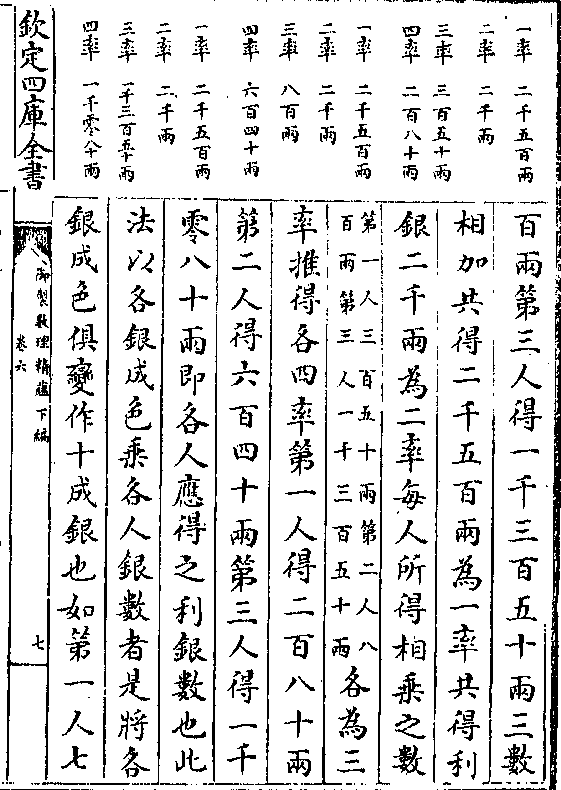 一率　二千五百兩
二率　二千兩
三率　三百五十兩
四率　二百八十兩
一率　二千五百兩
二率　二千兩
三率　八百兩
四率　六百四十兩
一率　二千五百兩
二率　二千兩
三率　一千三百五十兩
四率　一千零八十兩
百兩第三人得一千三百五十兩三數
相加共得二千五百兩為一率共得利
銀二千兩為二率每人所得相乘之數
第一人三百五十兩第二人八
百兩第三人一千三百五十兩
各為三
率推得各四率第一人得二百八十兩
第二人得六百四十兩第三人得一千
零八十兩即各人應得之利銀數也此
法以各銀成色乘各人銀數者是將各
銀成色俱變作十成銀也如第一人七
欽定四庫全書
御製數理精蘊下編
卷六
七